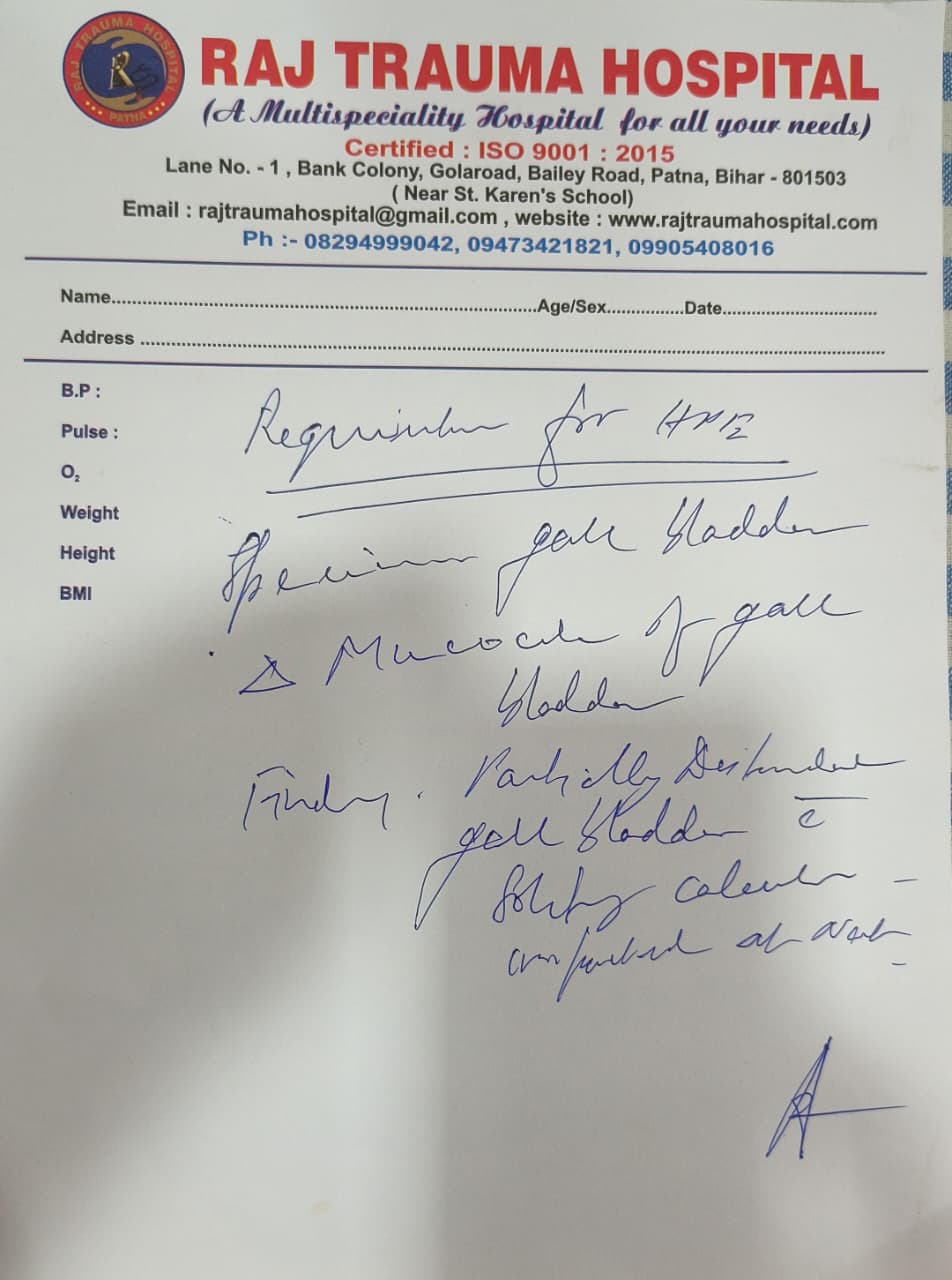 RAJ TRAUMA HOSPITAL
R
PATNA
RAJ TRAUMA HOSPITAL
(A Multispeciality Hospital for all your needs)
Certified : ISO 9001 : 2015
Lane No. - 1 , Bank Colony, Golaroad, Bailey Road, Patna, Bihar - 801503
( Near St. Karen's School)
Email : rajtraumahospital@gmail.com , website : www.rajtraumahospital.com
Ph :- 08294999042, 09473421821, 09905408016
Name.......................................Age/Sex................Date................................
Address ................................................................
B.P :
Pulse :
O₂
Weight
Height
BMI
Requisition for HPE
Specimen gall bladder
Δ Mucocele of gall
bladder
Finding. Partially Distended
gall bladder c̄
Solitary calculus
impacted at neck